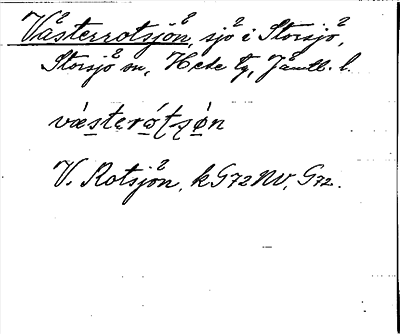 Västerrotsjön, sjö i Storsjö,
Storsjö sn, Hede tg, Jämtl. l.
væsterótsøn
V. Rotsjön, k G72NV, G72.